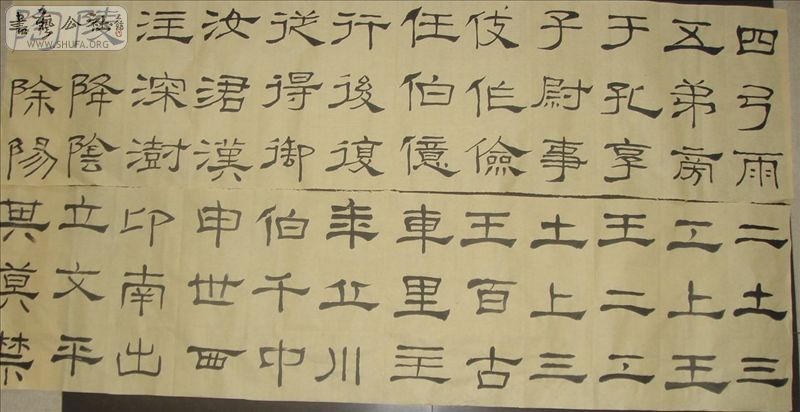 四弓雨
五弟房
于孔享
子尉事
伎作儉
任伯億
行後復
從得御
汝涒漢
注深澍
陵降陰
除陽
二土三
工上王
王二工
土上三
王百古
車里主
年丘川
伯千中
申世西
印南出
立文平
其莫禁
書藝公社
WWW.SHUFA.ORG